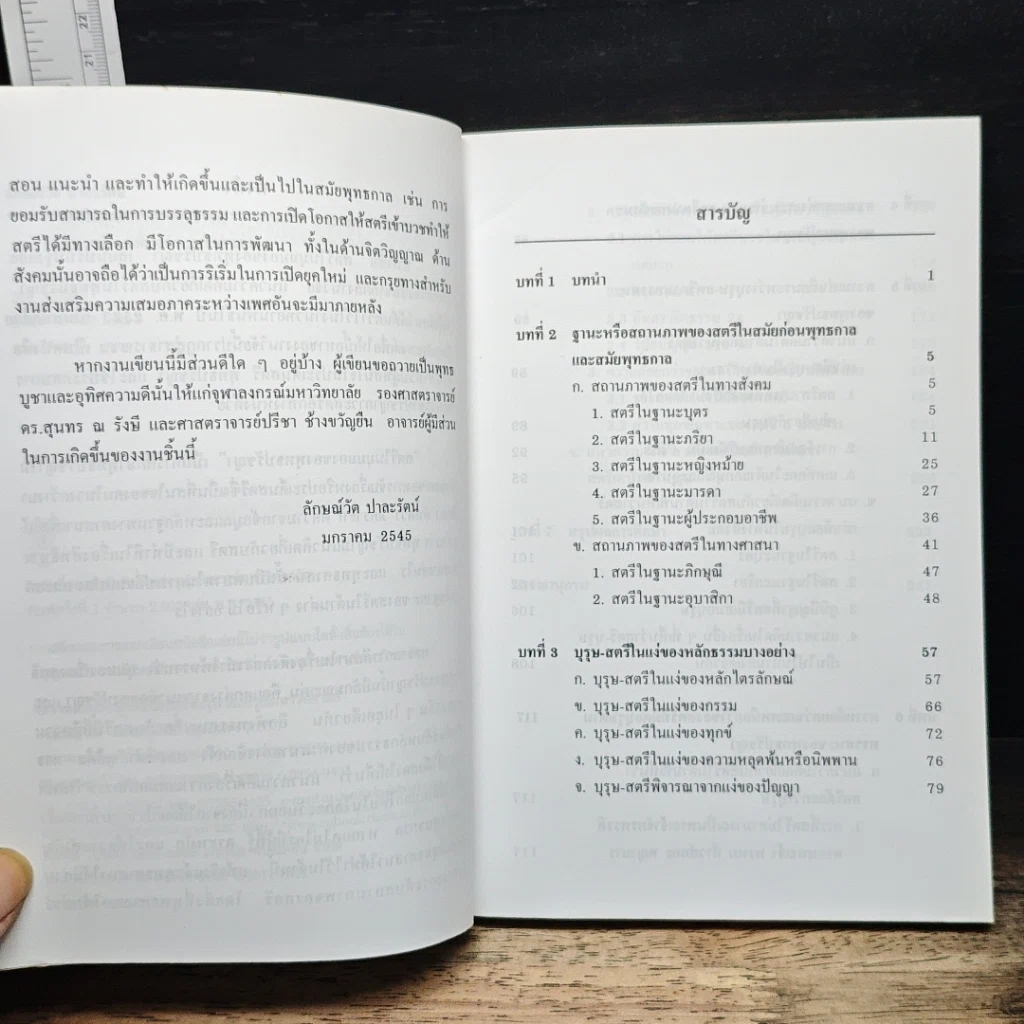 22
21
สอน แนะนำ และทำให้เกิดขึ้นและเป็นไปในสมัยพุทธกาล เช่น การ
ยอมรับสามารถในการบรรลุธรรม และการเปิดโอกาสให้สตรีเข้าบวชทำให้
สตรีได้มีทางเลือก มีโอกาสในการพัฒนา ทั้งในด้านจิตวิญญาณ ด้าน
สังคมนั้นอาจถือได้ว่าเป็นการริเริ่มในการเปิดยุคใหม่ และกรุยทางสำหรับ
งานส่งเสริมความเสมอภาคระหว่างเพศอันจะมีมาภายหลัง
หากงานเขียนนี้มีส่วนดีใด ๆ อยู่บ้าง ผู้เขียนขอถวายเป็นพุทธ
บูชาและอุทิศความดีนั้นให้แก่จุฬาลงกรณ์มหาวิทยาลัย รองศาสตราจารย์
ดร.สุนทร ณ รังษี และศาสตราจารย์ปรีชา ช้างขวัญยืน อาจารย์ผู้มีส่วน
ในการเกิดขึ้นของงานชิ้นนี้
ลักษณ์วัต ปาละรัตน์
มกราคม 2545
สารบัญ
บทที่ 1 บทนำ 1
บทที่ 2 ฐานะหรือสถานภาพของสตรีในสมัยก่อนพุทธกาล
และสมัยพุทธกาล 5
ก. สถานภาพของสตรีในทางสังคม 5
1. สตรีในฐานะบุตร 5
2. สตรีในฐานะภริยา 11
3. สตรีในฐานะหญิงหม้าย 25
4. สตรีในฐานะมารดา 27
5. สตรีในฐานะผู้ประกอบอาชีพ 36
ข. สถานภาพของสตรีในทางศาสนา 41
1. สตรีในฐานะภิกษุณี 47
2. สตรีในฐานะอุบาสิกา 48
บทที่ 3 บุรุษ-สตรีในแง่ของหลักธรรมบางอย่าง 57
ก. บุรุษ-สตรีในแง่ของหลักไตรลักษณ์ 57
ข. บุรุษ-สตรีในแง่ของกรรม 66
ค. บุรุษ-สตรีในแง่ของทุกข์ 72
ง. บุรุษ-สตรีในแง่ของความหลุดพ้นหรือนิพพาน 76
จ. บุรุษ-สตรีพิจารณาจากแง่ของปัญญา 79